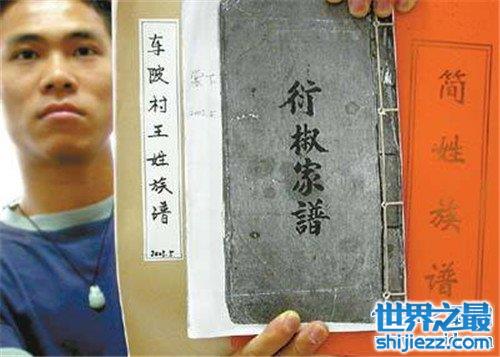 车陂村王姓族谱
2003.5
2003.5
衍椒家譜
简姓族谱
世界之最
shijiezzi.com